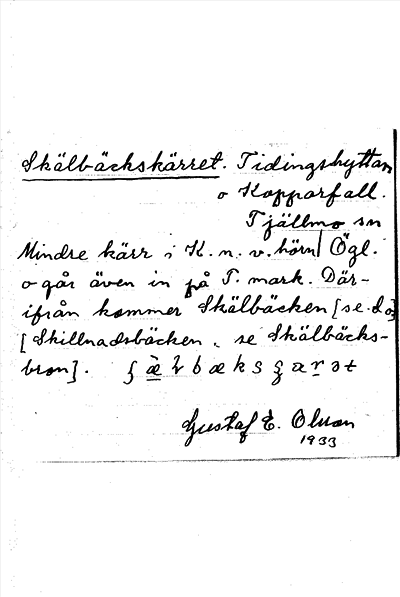 Skälbäckskärret. Tidingshyttan
o Kopparfall.
Tjällmo sn
Mindre kärr i K. n. v. hörn Ögl.
o går även in på T. mark. Där-
ifrån kommer Skälbäcken [se d.o]
[Skillnadsbäcken, se Skälbäcks-
bron].
Gustaf E. Olsson
1933